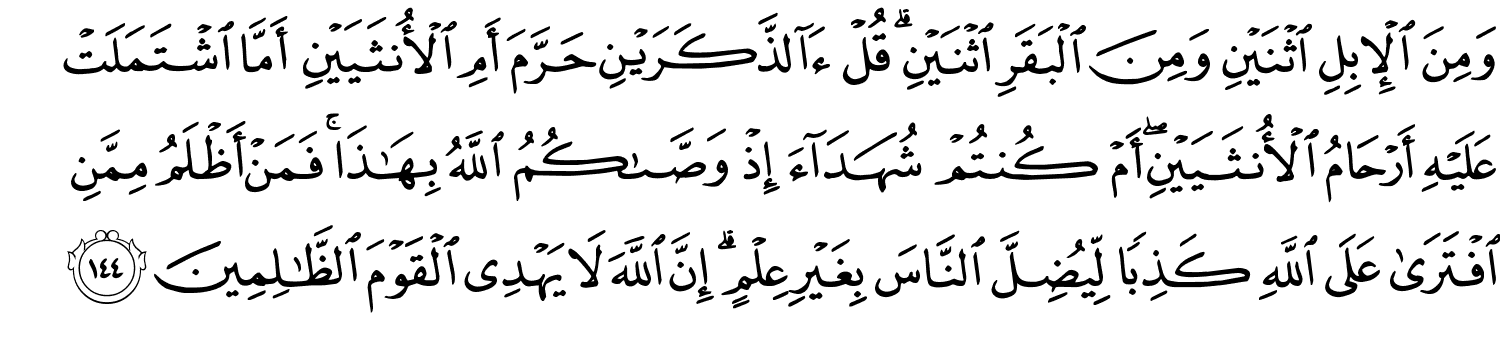 وَمِنَ ٱلْإِبِلِ ٱثْنَيْنِ وَمِنَ ٱلْبَقَرِ ٱثْنَيْنِ ۗ قُلْ ءَآلذَّكَرَيْنِ حَرَّمَ أَمِ ٱلْأُنثَيَيْنِ أَمَّا ٱشْتَمَلَتْ
عَلَيْهِ أَرْحَامُ ٱلْأُنثَيَيْنِ ۖ أَمْ كُنتُمْ شُهَدَآءَ إِذْ وَصَّىٰكُمُ ٱللَّهُ بِهَـٰذَا ۚ فَمَنْ أَظْلَمُ مِمَّنِ
ٱفْتَرَىٰ عَلَى ٱللَّهِ كَذِبًا لِّيُضِلَّ ٱلنَّاسَ بِغَيْرِ عِلْمٍ ۗ إِنَّ ٱللَّهَ لَا يَهْدِى ٱلْقَوْمَ ٱلظَّـٰلِمِينَ ١٤٤